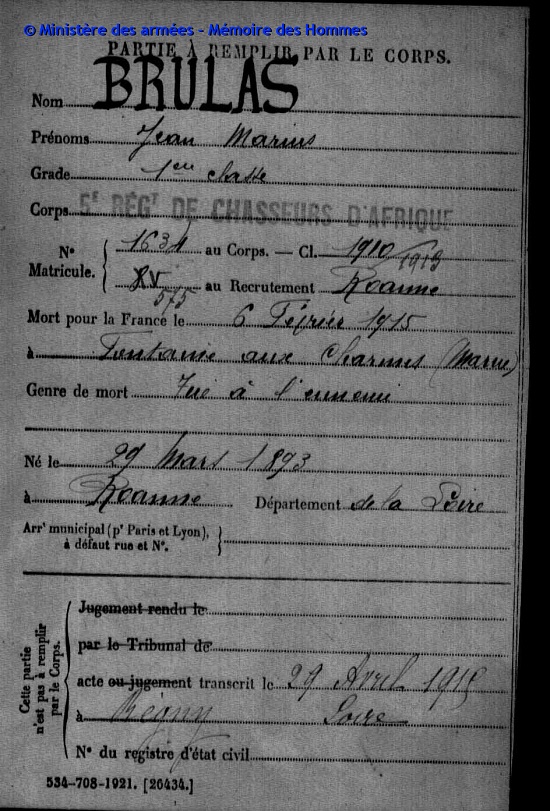 © Ministère des armées - Mémoire des Hommes
PARTIE À REMPLIR PAR LE CORPS.
Nom BRULAS
Prénoms Jean Marius
Grade 1ère classe
Corps 5e RÉGT DE CHASSEURS D'AFRIQUE
N° Matricule. { 1634 au Corps. — Cl. 1910/1913
575 au Recrutement Roanne
Mort pour la France le 6 Février 1915
à Fontaine aux Charmes (Marne)
Genre de mort Tué à l'ennemi
Né le 29 Mars 1893
à Roanne Département de la Loire
Arrt municipal (pr Paris et Lyon), à défaut rue et N°. }
Cette partie n'est pas à remplir par le Corps. {
Jugement rendu le
par le Tribunal de
acte ou jugement transcrit le 29 Avril 1915
à Régny Loire
N° du registre d'état civil
534-708-1921. [26434.]